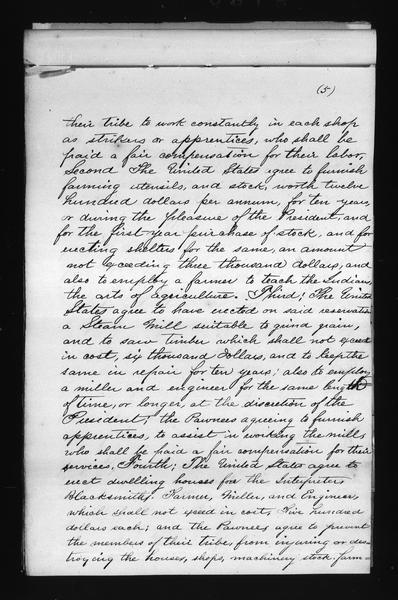 (5)
their tribe to work constantly in each shop
as strikers or apprentices, who shall be
paid a fair compensation for their labor,
Second The United States agree to furnish
farming utensils, and stock, worth twelve
hundred dollars per annum, for ten years
or during the pleasure of the President, and
for the first year purchase of stock, and for
erecting shelters for the same, an amount
not exceeding three thousand dollars, and
also to employ a farmer to teach the Indians
the arts of agriculture. Third; The United
States agree to have erected on said reservation
a Steam Mill suitable to grind grain,
and to saw timber which shall not exceed
in cost, six thousand dollars, and to keep the
same in repair for ten years; also to employ
a miller and engineer for the same length
of time, or longer, at the discretion of the
President; the Pawnees agreeing to furnish
apprentices, to assist in working the mill,
who shall be paid a fair compensation for their
services, Fourth; The United States agree to
erect dwelling houses for the Interpreter
Blacksmiths, Farmer, Miller, and Engineer,
which shall not exceed in cost, Five hundred
dollars each; and the Pawnees agree to prevent
the members of their tribe, from injuring or des-
troying the houses, shops, machinery stock farm-